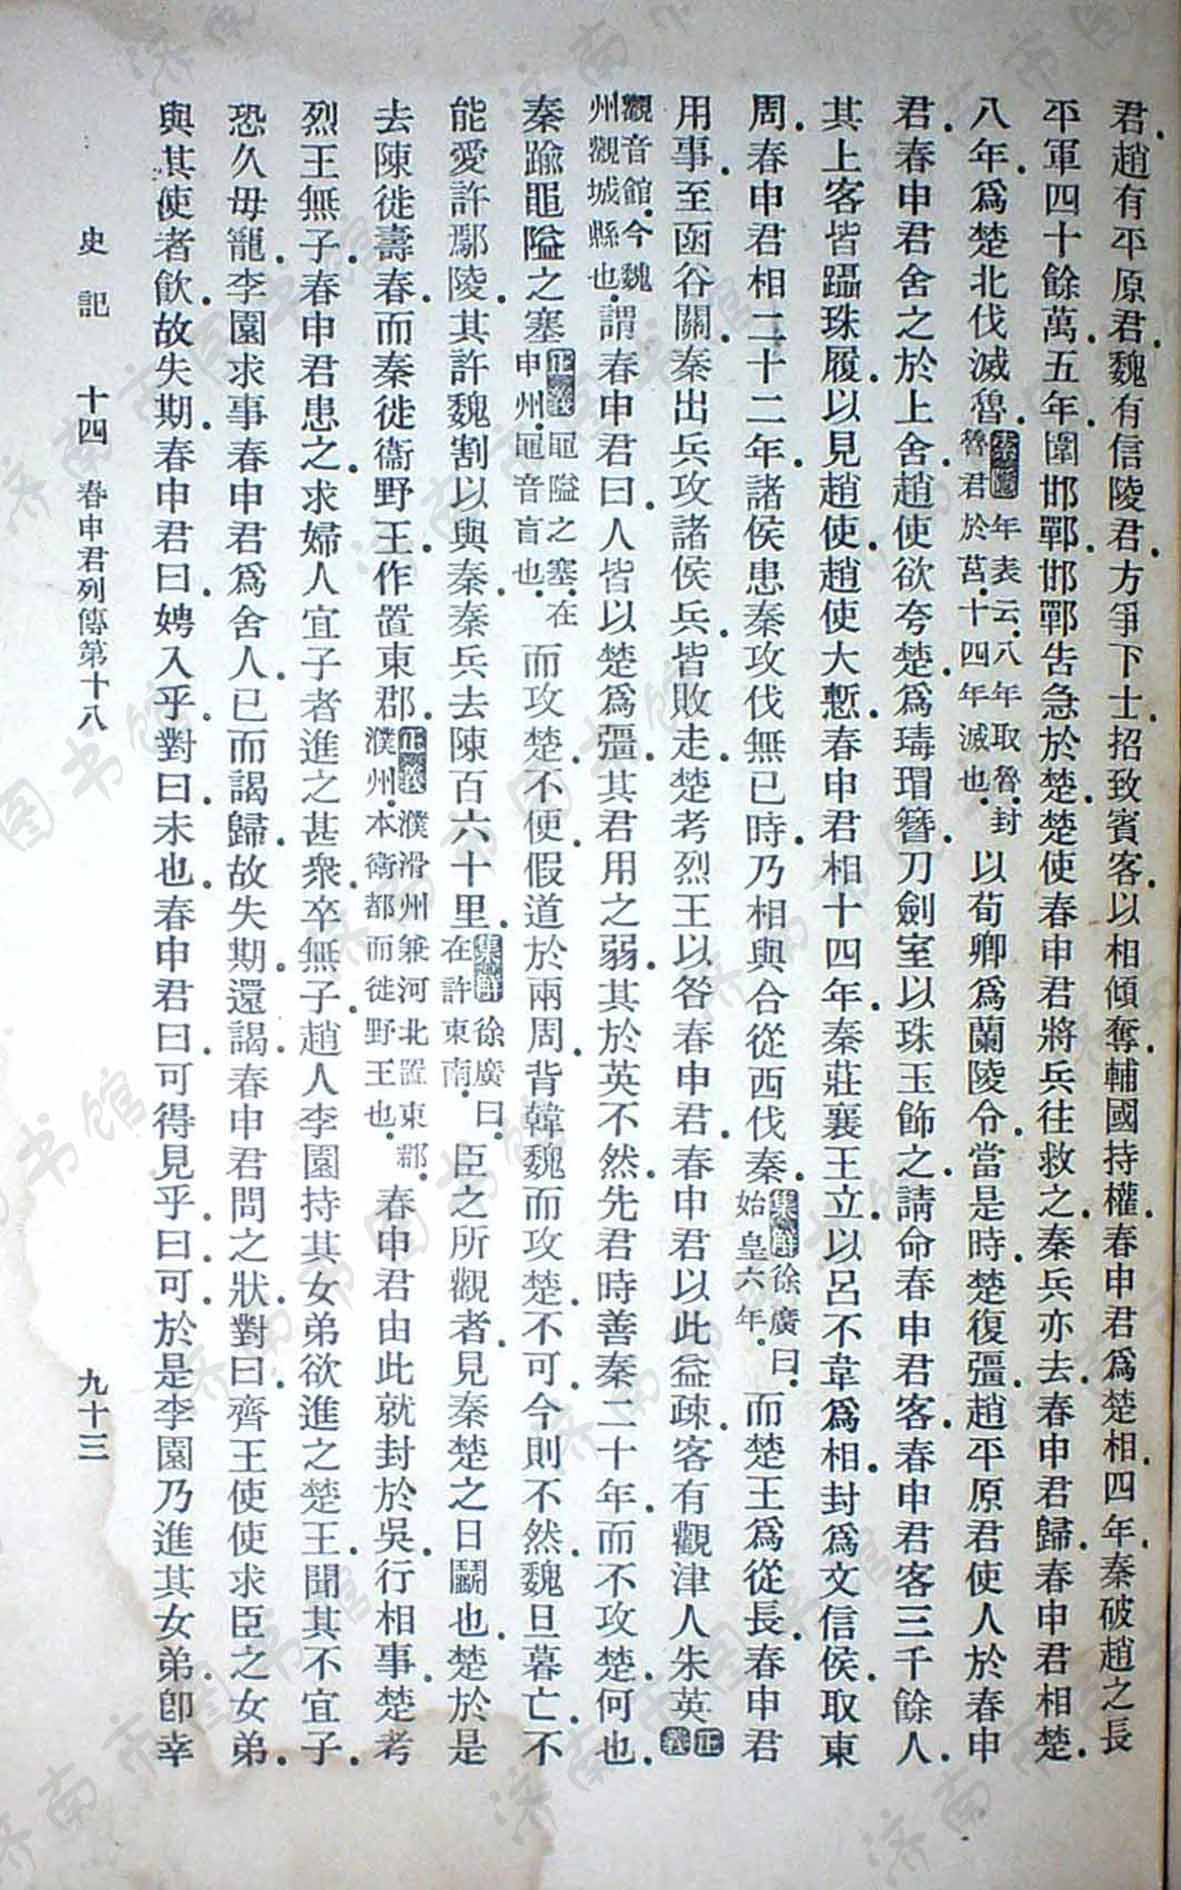 君。趙有平原君。魏有信陵君。方爭下士。招致賓客。以相傾奪。輔國持權。春申君爲楚相。四年。秦破趙之長
平軍四十餘萬。五年。圍邯鄲。邯鄲告急於楚。楚使春申君將兵往救之。秦兵亦去。春申君歸。春申君相楚。
八年。爲楚北伐滅魯。集解年表云。八年取魯。封魯君於莒。十四年滅也。以荀卿爲蘭陵令。當是時。楚復彊。趙平原君使人於春申
君。春申君舍之於上舍。趙使欲夸楚。爲瑇瑁簪。刀劍室以珠玉飾之。請命春申君客。春申君客三千餘人。
其上客皆躡珠履。以見趙使。趙使大慙。春申君相十四年。秦莊襄王立。以呂不韋爲相。封爲文信侯。取東
周。春申君相二十二年。諸侯患秦攻伐無已時。乃相與合從西伐秦。集解徐廣曰。始皇六年。而楚王爲從長。春申君
用事。至函谷關。秦出兵攻諸侯兵。皆敗走。楚考烈王以咎春申君。春申君以此益疎。客有觀津人朱英。正義
觀音館。今魏州觀城縣也。謂春申君曰。人皆以楚爲彊。其君用之弱。其於英不然。先君時善秦二十年。而不攻楚。何也。
秦踰黽隘之塞。正義黽隘之塞。在申州。黽音盲也。而攻楚。不便。假道於兩周。背韓魏而攻楚。不可。今則不然。魏旦暮亡。不
能愛許鄢陵。其許魏割以與秦。秦兵去陳百六十里。集解徐廣曰。在許東南。臣之所觀者。見秦楚之日鬬也。楚於是
去陳徙壽春。而秦徙衞野王。作置東郡。正義濮滑州兼河北置東郡。濮州。本衞都而徙野王也。春申君由此就封於吳。行相事。楚考
烈王無子。春申君患之。求婦人宜子者進之甚衆。卒無子。趙人李園持其女弟欲進之楚王。聞其不宜子。
恐久毋寵。李園求事春申君爲舍人。已而謁歸。故失期。還謁。春申君問之狀。對曰。齊王使使求臣之女弟。
與其使者飲。故失期。春申君曰。娉入乎。對曰。未也。春申君曰。可得見乎。曰。可。於是李園乃進其女弟。卽幸
史記 十四 春申君列傳第十八 九十三